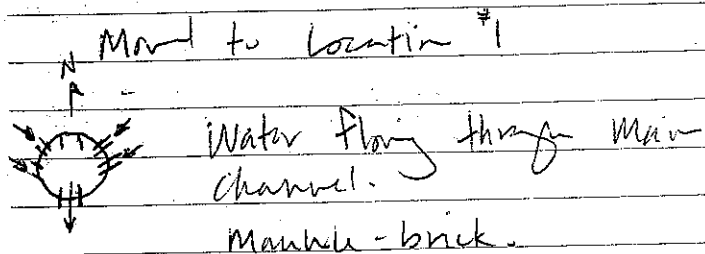 Moved to Location #1
N
Water flowing through Main
channel.
Manhole - brick.